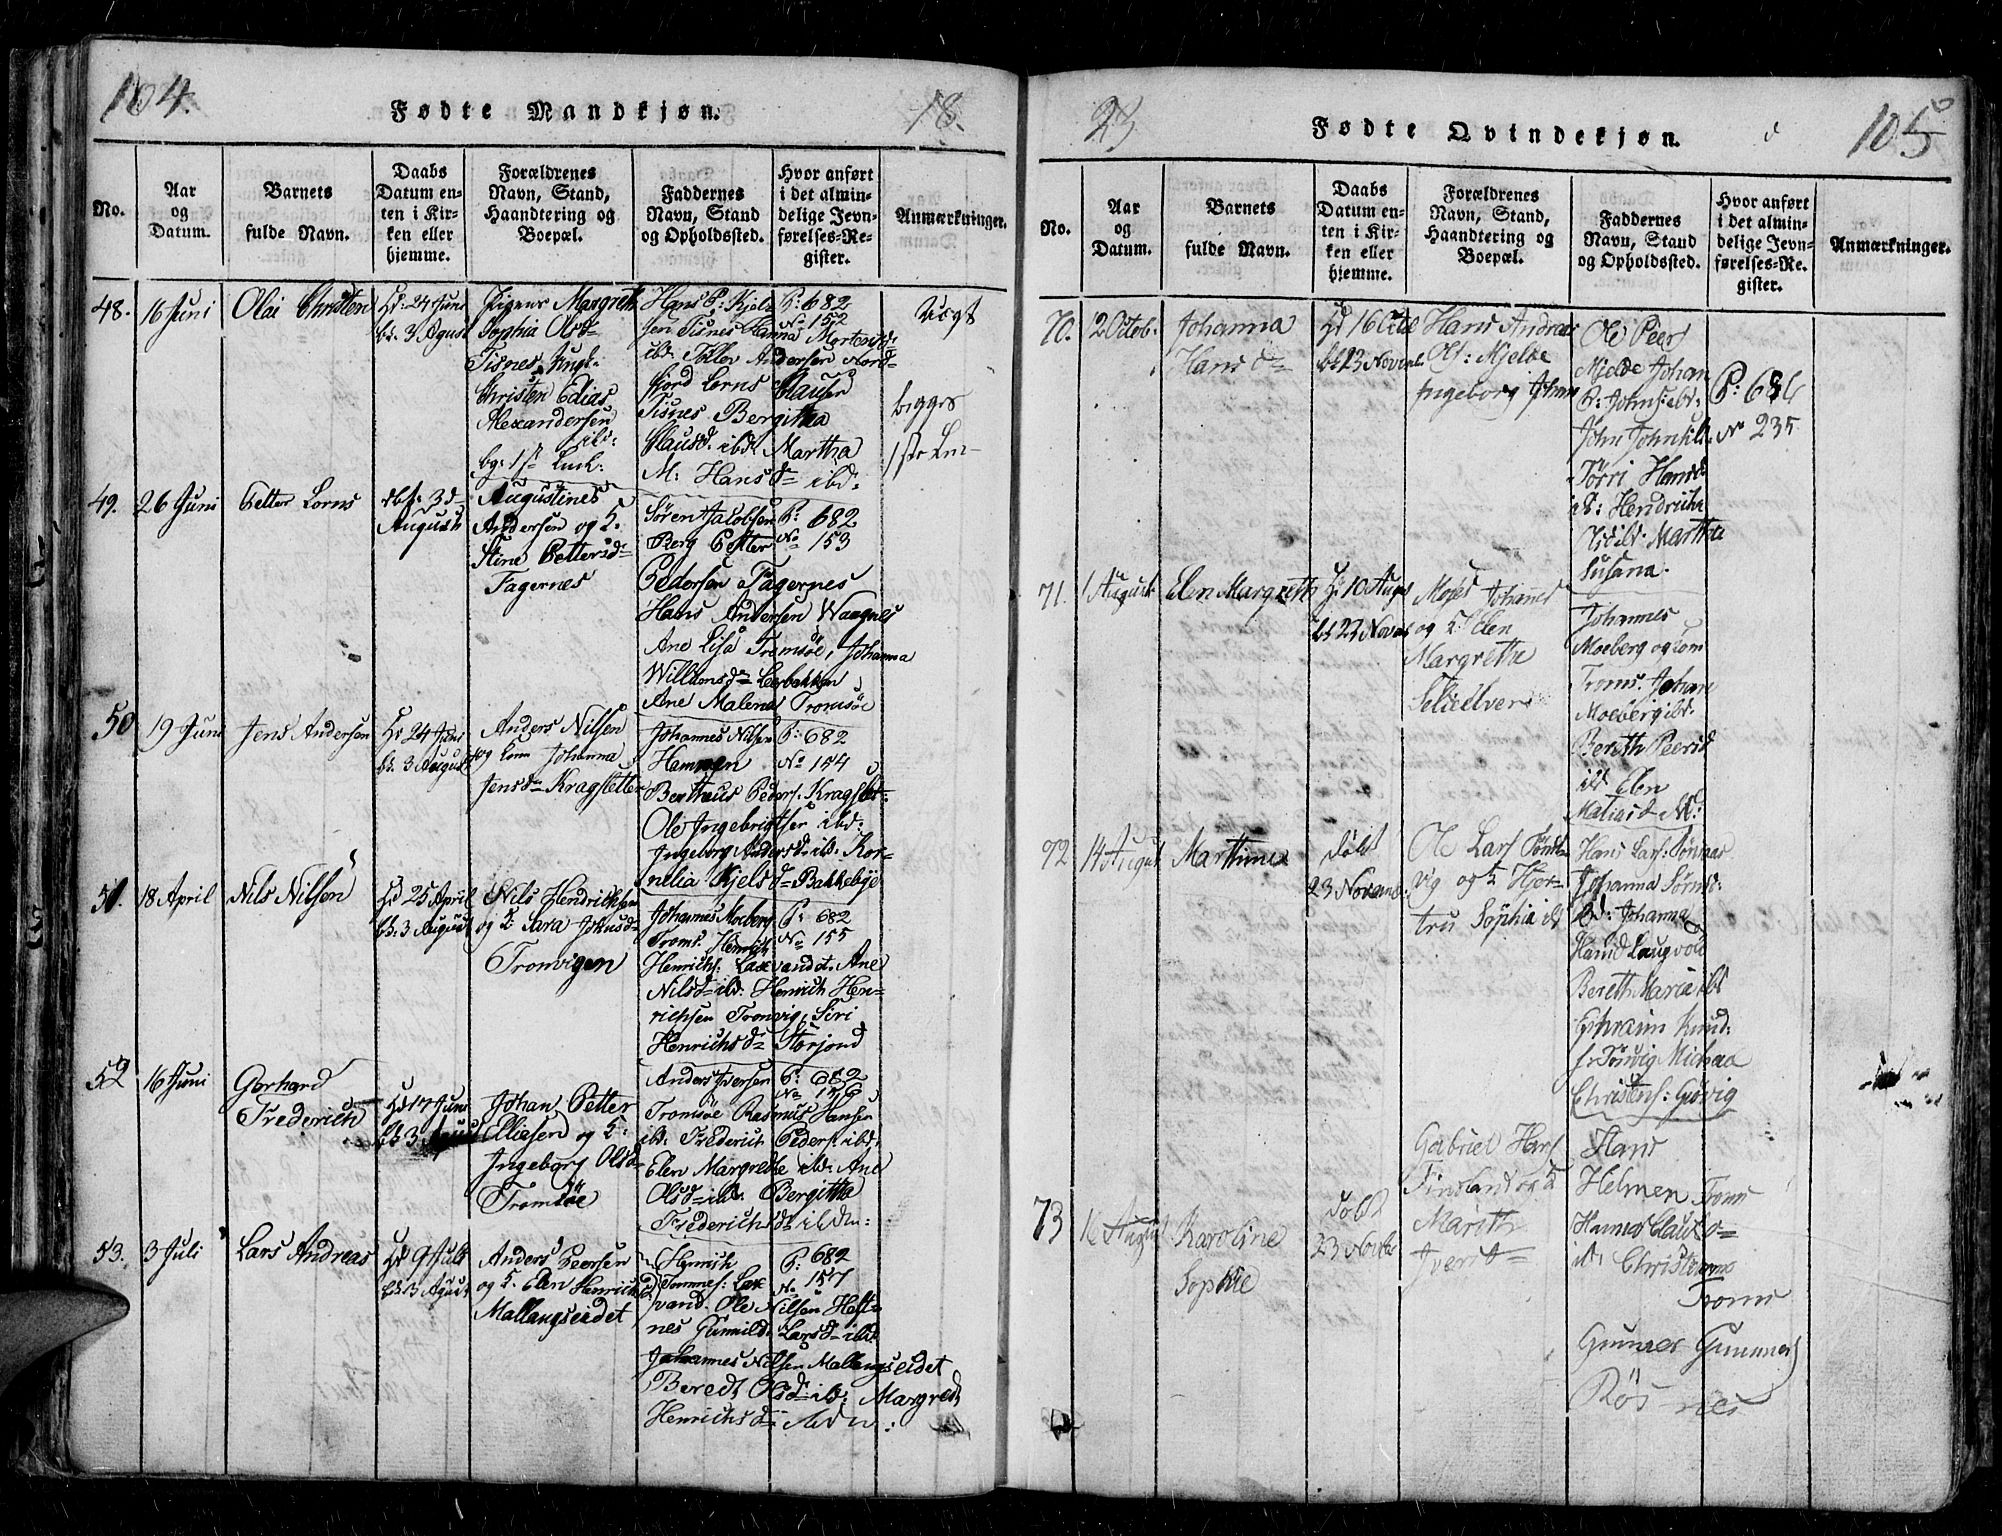 104.
Fødte Mandkjøn.
18.
No.
Aar
og
Datum.
Barnets
fulde Navn.
Daabs
Datum en-
ten i Kir-
ken eller
hjemme.
Forældrenes
Navn, Stand,
Haandtering og
Boepæl.
Faddernes
Navn, Stand
og Opholdssted.
Hvor anført
i det almin-
delige Jevn-
førelses-Re-
gister.
Anmærkninger.
48.
16 Juni
Olai Christen
Hd: 24 Juni
bk. 3 August
Pigens Margreth
Sophia Olsd
Tisnes, Ungk.
Christen Edias
Alexandersen
ibd:
Hans P: Kjel-
sen Tisnes Hanna Mortensd
ibd: Tollev Andersen Nord-
fjord Lorns Clausen
Tisnes Bergitha
Clausd. ibd: Martha
M: Hansd ibd:
P: 682
No 152
Uegt
begges
1ste Lei-
49.
26 Juni
Petter Lorns
dbt: 3d
August
Augustines
Andersen og K.
Stine Pettersd
Fagernes
Søren Jacobsen
Berg Petter
Pedersen Fagernes
Hans Andersen Waagnes
Ane Lisa Tromsöe, Johanna
Willumsd Leerbakken
Ane Malena Tromsöe
P: 682
No 153
50
19 Juni
Jens Andersen
Hd 24 Juni
bk. 3 August
Anders Nilsen
og kone Johanna
Jensd Kragstetter
Johannes Nilsen
Hamnen
Bertheus Peders. Kragstet-
Ole Ingebrigtsen ibd:
Ingeborg Andersd. ibd. Kor-
nelia Kjelsd Bakkebye
P: 682
No 154
51.
18 April
Nils Nilsen
Hd 25 April
bk. 3 August
Nils Hendrichsen
og K. Sara Johnsd
Tronvigen
Johannes Moeberg
Troms. Henrich
Henrichs. Laxevandet. Ane
Nilsd ibd: Henrich Hen-
richsen Tronvig, Siri
Henrichsd Storjord
P: 682
No 155
52
16 Juni
Gerhard
Frederich
Hd 17 Juni
bk 3 August
Johan Petter
Eliesen og K:
Ingeborg Olsd
Tromsöe
Anders Iversen
Tromsöe Rasmus Hansen
ibd: Frederich Peders. ibd:
Elen Margrethe ibd: Ane
Olsd ibd. Bergitha
Frederichsd ibdm:
P: 682
No 156
53.
3 Juli
Lars Andreas
Hd 9 Juli
bk 3 August
Anders Peersen
og K. Elen Henrichsd
Mallangseidet
Henrich
Tommes. Lax-
vand. Ole Nilsen Heft-
nes Gunnild Larsd ibd
Johannes Nilsen Mallangseidet
Beredt Olsd ibd: Margredt
Henrichsd ibdm:
P: 682
No 157
23
Fødte Qvindekjøn.
105
No.
Aar
og
Datum.
Barnets
fulde Navn.
Daabs
Datum en-
ten i Kir-
ken eller
hjemme.
Forældrenes
Navn, Stand,
Haandtering og
Boepæl.
Faddernes
Navn, Stand
og Opholdssted.
Hvor anført
i det almin-
delige Jevn-
førelses-Re-
gister.
Anmærkninger.
70.
2 Octob.
Johanna
Hansd
Hd 16 Octb
bk 23 Novemb
Hans Andreas
Ols: Mjelde
Ingeborg Johan
Ole Peers
Mjelde Johan
P: Johns: ibd:
John Johns ibd.
Törri Hansd
ibd: Hendricha
ibd: Martha
Susana.
P: 686
No 235
71.
1 August
Elen Margreth
Hd 10 Augs
bk 23 Novemb
Moses Johannes
og K Elen
Margretha
Selieelven
Johannes
Moeberg og kone
Troms. Johan
Moeberg ibd.
Bereth Peersd
ibd Elen
Matiasd
72
14 August
Marthina
döbt
23 Novemb:
Ole Lars Tönds-
vig og K Hjer-
tru Sophia ibd
Hans Lars: Tønnas
Johanna Sørensd:
ibd: Johanna
Hansd Laugvold
Bereth Maria ibd
Ephraim Knud:
Tönvig Michaa
Christens: Gövig
73
16 August
Karoline
Sophie
döbt
23 Novbr
Gabriel Hans
Finsland og K
Mareth
Iversd
Hans
Helmen Troms
Hannes Claus
ibd: Christianna
Troms
Gunner Gunners
Rös-nes